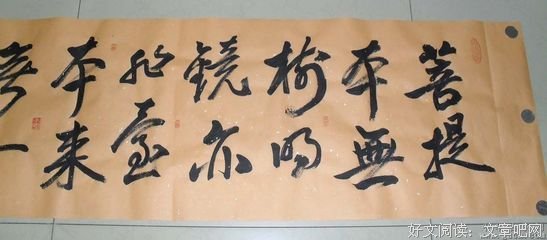 菩提
本無
樹明
鏡亦
非臺
本来
無一
好文阅读：文章吧网